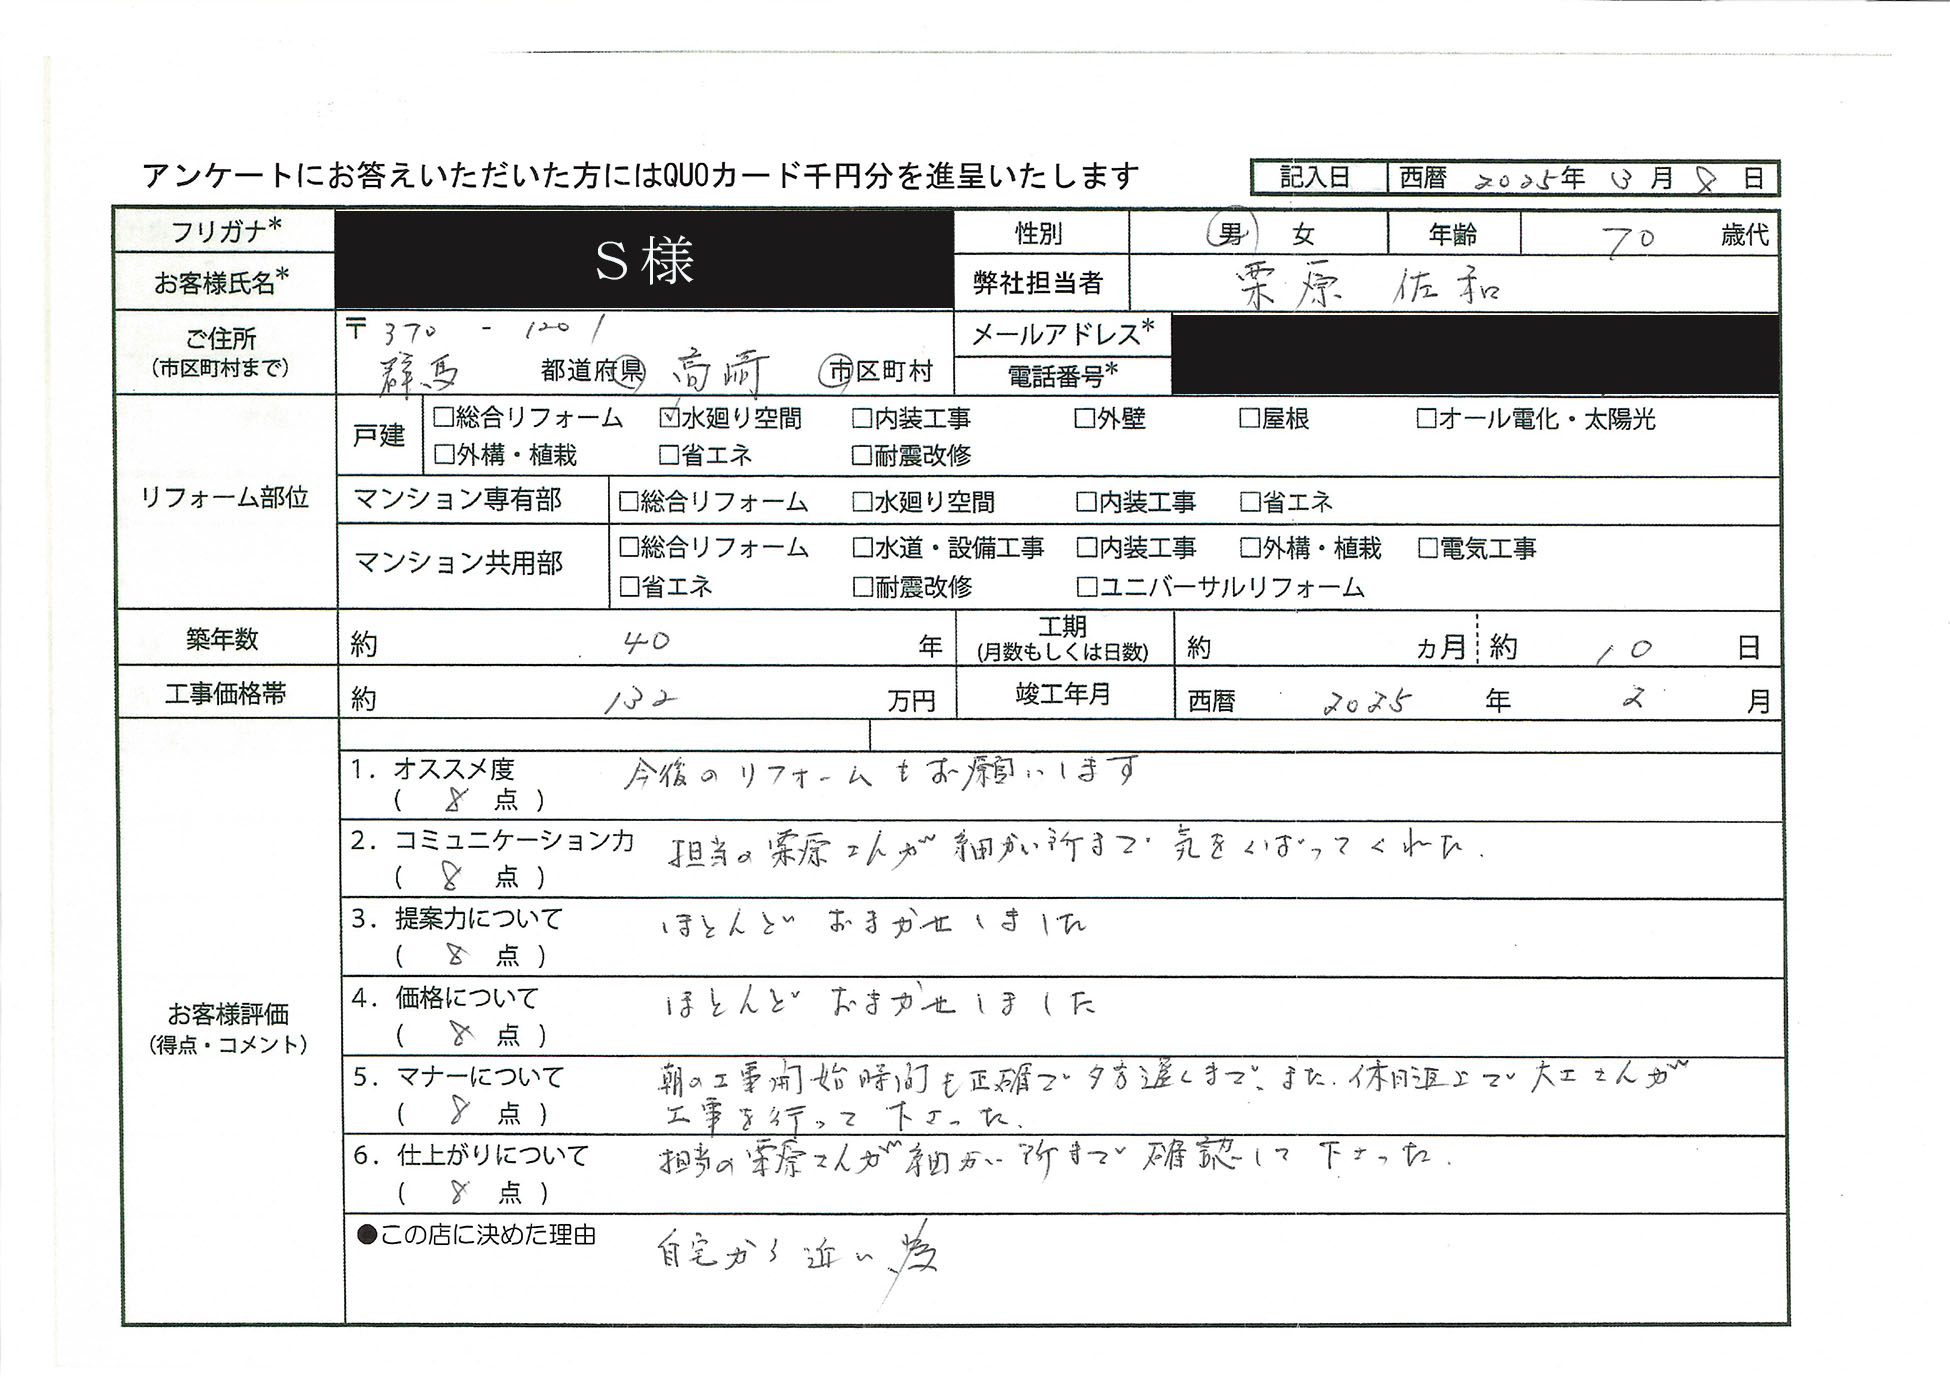 アンケートにお答えいただいた方にはQUOカード千円分を進呈いたします
記入日 西暦 2025年 3月 8日
フリガナ* S様 性別 男 女 年齢 70 歳代
お客様氏名* 弊社担当者 栗原 佐和
ご住所 〒370 - 1201 メールアドレス*
(市区町村まで) 群馬 都道府県 高崎 市区町村 電話番号*
リフォーム部位
戸建 □総合リフォーム ☑水廻り空間 □内装工事 □外壁 □屋根 □オール電化・太陽光
□外構・植栽 □省エネ □耐震改修
マンション専有部 □総合リフォーム □水廻り空間 □内装工事 □省エネ
マンション共用部 □総合リフォーム □水道・設備工事 □内装工事 □外構・植栽 □電気工事
□省エネ □耐震改修 □ユニバーサルリフォーム
築年数 約 40 年 工期 (月数もしくは日数) 約 カ月 約 10 日
工事価格帯 約 132 万円 竣工年月 西暦 2025 年 2 月
お客様評価
(得点・コメント)
1. オススメ度 今後のリフォームもお願いします
( 8 点 )
2. コミュニケーション力 担当の栗原さんが細かい所まで気をくばってくれた.
( 8 点 )
3. 提案力について ほとんどおまかせしました
( 8 点 )
4. 価格について ほとんどおまかせしました
( 8 点 )
5. マナーについて 朝の工事開始時間も正確で夕方遅くまで、また、休日返上で大工さんが
( 8 点 ) 工事を行って下さった.
6. 仕上がりについて 担当の栗原さんが細かい所まで確認して下さった.
( 8 点 )
●この店に決めた理由 自宅から近い為